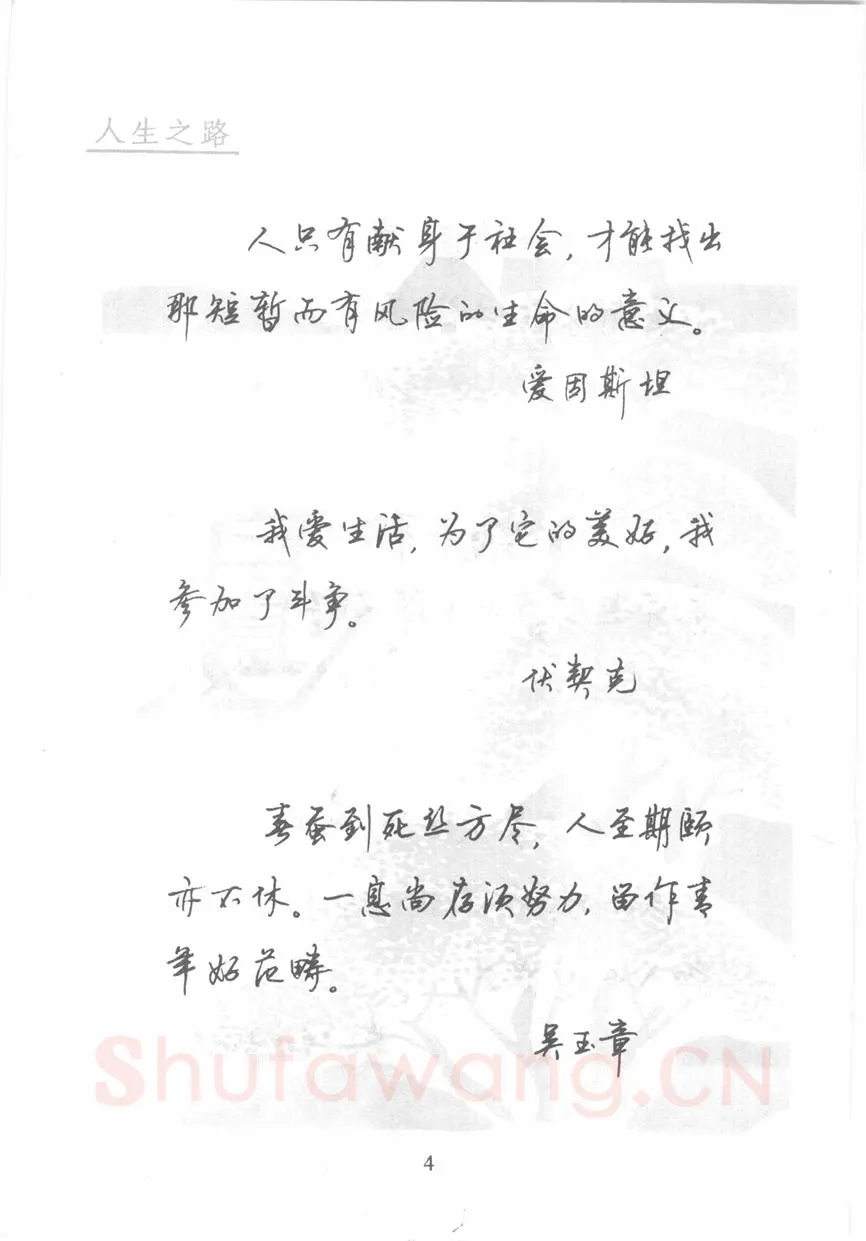 人生之路
人只有献身于社会，才能找出
那短暂而有风险的生命的意义。
爱因斯坦
我爱生活，为了它的美好，我
参加了斗争。
伏契克
春蚕到死丝方尽，人至期颐
亦不休。一息尚存须努力，留作青
年好范畴。
吴玉章
Shufawang.CN
4